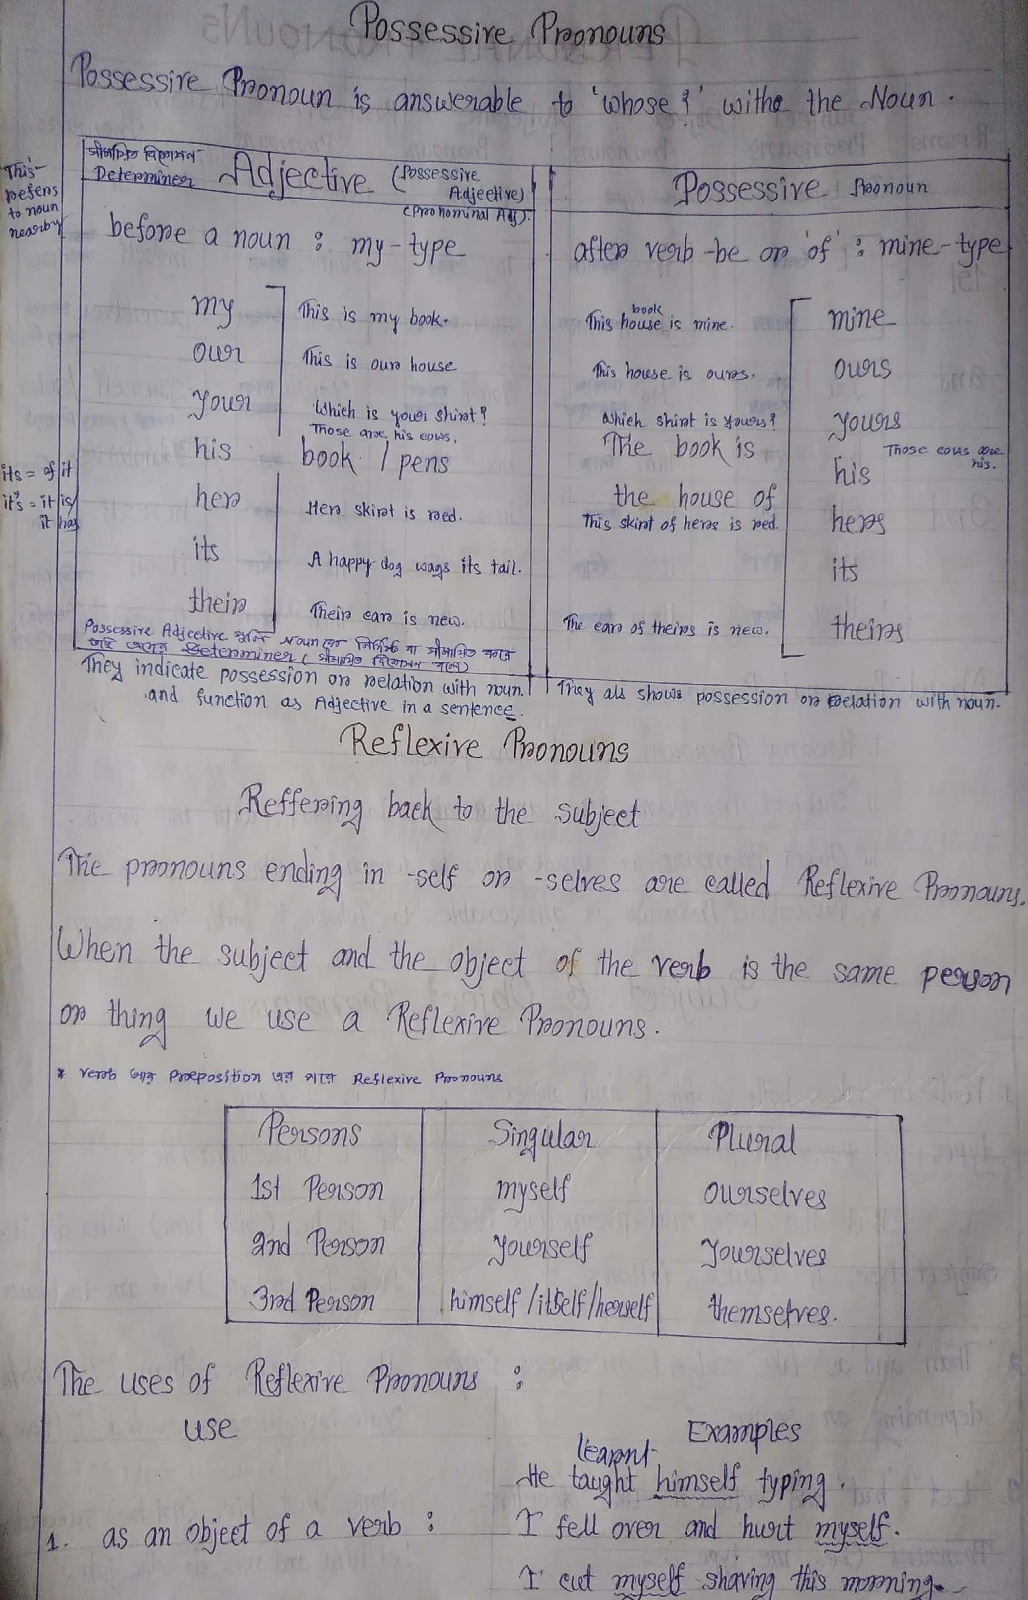 Possessive Pronouns
Possessive Pronoun is answerable to 'whose?' with the Noun.
This refers to noun nearby
সীমাবদ্ধ বিশেষণ
Determiner Adjective (Possessive Adjective)
(Pronominal Adj).
before a noun : my-type
my This is my book.
our This is our house
your Which is your shirt?
Those are his cows.
his book / pens
her Her skirt is red.
its A happy dog wags its tail.
their Their car is new.
its = of it
it's = it is/
it has
Possessive Adjective Noun কে নির্দিষ্ট বা
Determiner
They indicate possession or relation with noun.
and function as Adjective in a sentence.
Possessive Pronoun
after verb-be or 'of' : mine-type
book
This house is mine. mine
This house is ours. ours
Which shirt is yours? yours
The book is his Those cows are his.
the house of
This skirt of hers is red. hers
its
The car of theirs is new. theirs
They als shows possession or relation with noun.
Reflexive Pronouns
Reffering back to the subject
The pronouns ending in -self or -selves are called Reflexive Pronouns.
When the subject and the object of the verb is the same person
or thing we use a Reflexive Pronouns.
* verb আর Preposition এর পরে Reflexive Pronouns
Persons Singular Plural
1st Person myself ourselves
2nd Person yourself yourselves
3rd Person himself / itself / herself themselves.
The uses of Reflexive Pronouns :
use Examples
learnt
He taught himself typing.
1. as an object of a verb : I fell over and hurt myself.
I cut myself shaving this morning.